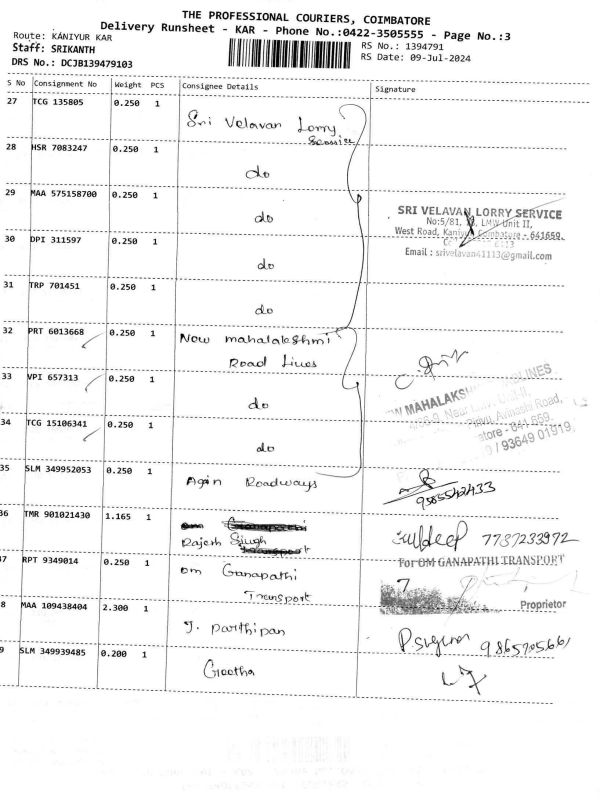 THE PROFESSIONAL COURIERS, COIMBATORE
Delivery Runsheet - KAR - Phone No.:0422-3505555 - Page No.:3
Route: KANIYUR KAR
Staff: SRIKANTH
DRS No.: DCJB139479103
RS No.: 1394791
RS Date: 09-Jul-2024
S No Consignment No Weight PCS Consignee Details Signature
27 TCG 135805 0.250 1 Sri Velavan Lorry
28 HSR 7083247 0.250 1 do
29 MAA 575158700 0.250 1 do
SRI VELAVAN LORRY SERVICE
No:5/81, LMW Unit II,
West Road, Kaniyur, Coimbatore - 641659.
Email : srivelavan41113@gmail.com
30 DPI 311597 0.250 1 do
31 TRP 701451 0.250 1 do
32 PRT 6013668 0.250 1 New mahalakshmi
Road Lines
33 VPI 657313 0.250 1 do
MAHALAKSH
Avinashi Road,
641 659.
93649 01919,
34 TCG 15106341 0.250 1 do
35 SLM 349952053 0.250 1 Agin Roadways
36 TMR 901021430 1.165 1 Rajesh Singh
7787233972
7 RPT 9349014 0.250 1 om Ganapathi
Transport
For OM GANAPATHI TRANSPORT
Proprietor
8 MAA 109438404 2.300 1 J. Parthipan
9 SLM 349939485 0.200 1 Geetha